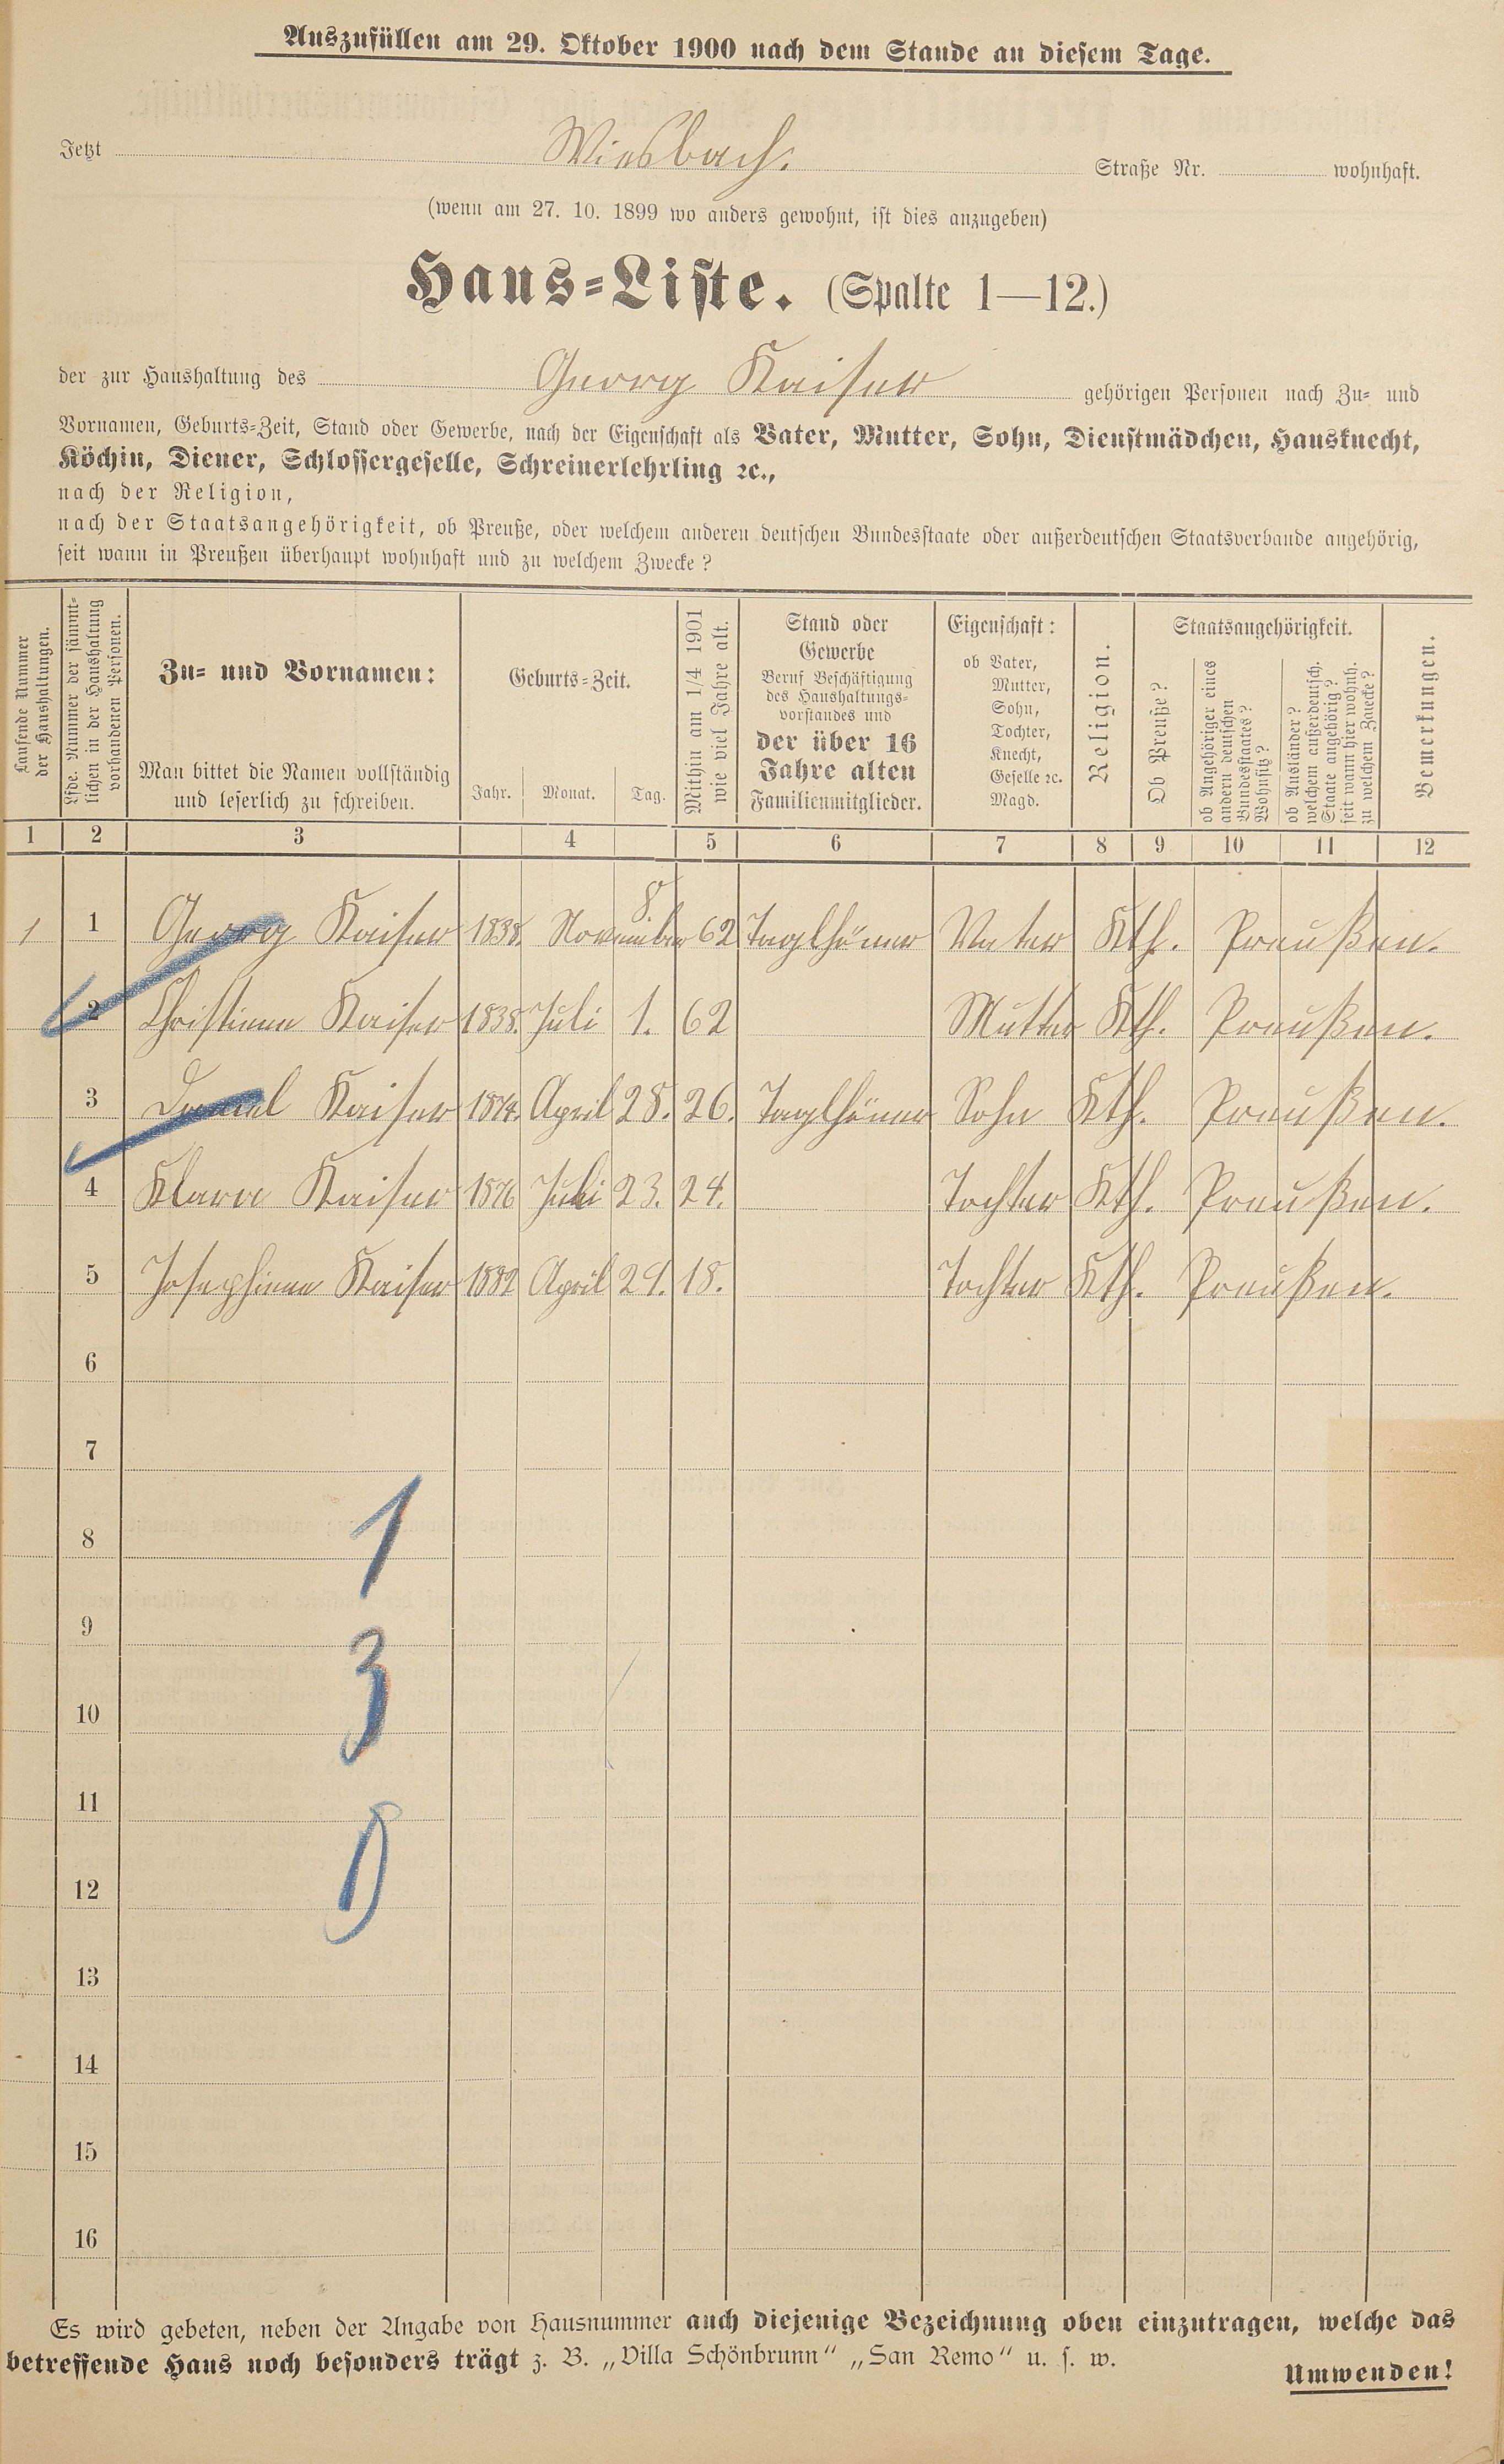 Auszufüllen am 29. Oktober 1900 nach dem Stande an diesem Tage.
Jetzt Wiesbach. Straße Nr. wohnhaft.
(wenn am 27. 10. 1899 wo anders gewohnt, ist dies anzugeben)
Haus-Liste. (Spalte 1—12.)
der zur Haushaltung des Georg Kaiser gehörigen Personen nach Zu- und
Vornamen, Geburts-Zeit, Stand oder Gewerbe, nach der Eigenschaft als Vater, Mutter, Sohn, Dienstmädchen, Hausknecht,
Köchin, Diener, Schlossergeselle, Schreinerlehrling ꝛc.,
nach der Religion,
nach der Staatsangehörigkeit, ob Preuße, oder welchem anderen deutschen Bundesstaate oder außerdeutschen Staatsverbande angehörig,
seit wann in Preußen überhaupt wohnhaft und zu welchem Zwecke?
Laufende Nummer
der Haushaltungen.
Lfde. Nummer der sämmt-
lichen in der Haushaltung
vorhandenen Personen.
Zu- und Vornamen:
Man bittet die Namen vollständig
und leserlich zu schreiben.
Geburts-Zeit.
Jahr. Monat. Tag.
Mithin am 1/4 1901
wie viel Jahre alt.
Stand oder
Gewerbe
Beruf Beschäftigung
des Haushaltungs-
vorstandes und
der über 16
Jahre alten
Familienmitglieder.
Eigenschaft:
ob Vater,
Mutter,
Sohn,
Tochter,
Knecht,
Geselle ꝛc.
Magd.
Religion.
Staatsangehörigkeit.
Ob Preuße?
ob Angehöriger eines
andern deutschen
Bundesstaates?
Wohnsitz?
ob Ausländer?
welchem außerdeutsch.
Staate angehörig?
seit wann hier wohnh.
zu welchem Zwecke?
Bemerkungen.
1 2 3 4 5 6 7 8 9 10 11 12
1 1 Georg Kaiser 1838. November 8. 62 Taglhöner Vater Kth. Preußen.
2 Christiena Kaiser 1838. Juli 1. 62 Mutter Kth. Preußen.
3 Daniel Kaiser 1874. April 28. 26. Taglhöner Sohn Kth. Preußen.
4 Klara Kaiser 1876 Juli 23. 24. Tochter Kth. Preußen.
5 Josephiena Kaiser 1882 April 29. 18. Tochter Kth. Preußen.
6
7
8
1
9
3
10
11
12
0
13
14
15
16
Es wird gebeten, neben der Angabe von Hausnummer auch diejenige Bezeichnung oben einzutragen, welche das
betreffende Haus noch besonders trägt z. B. „Villa Schönbrunn“ „San Remo“ u. s. w.
Umwenden!